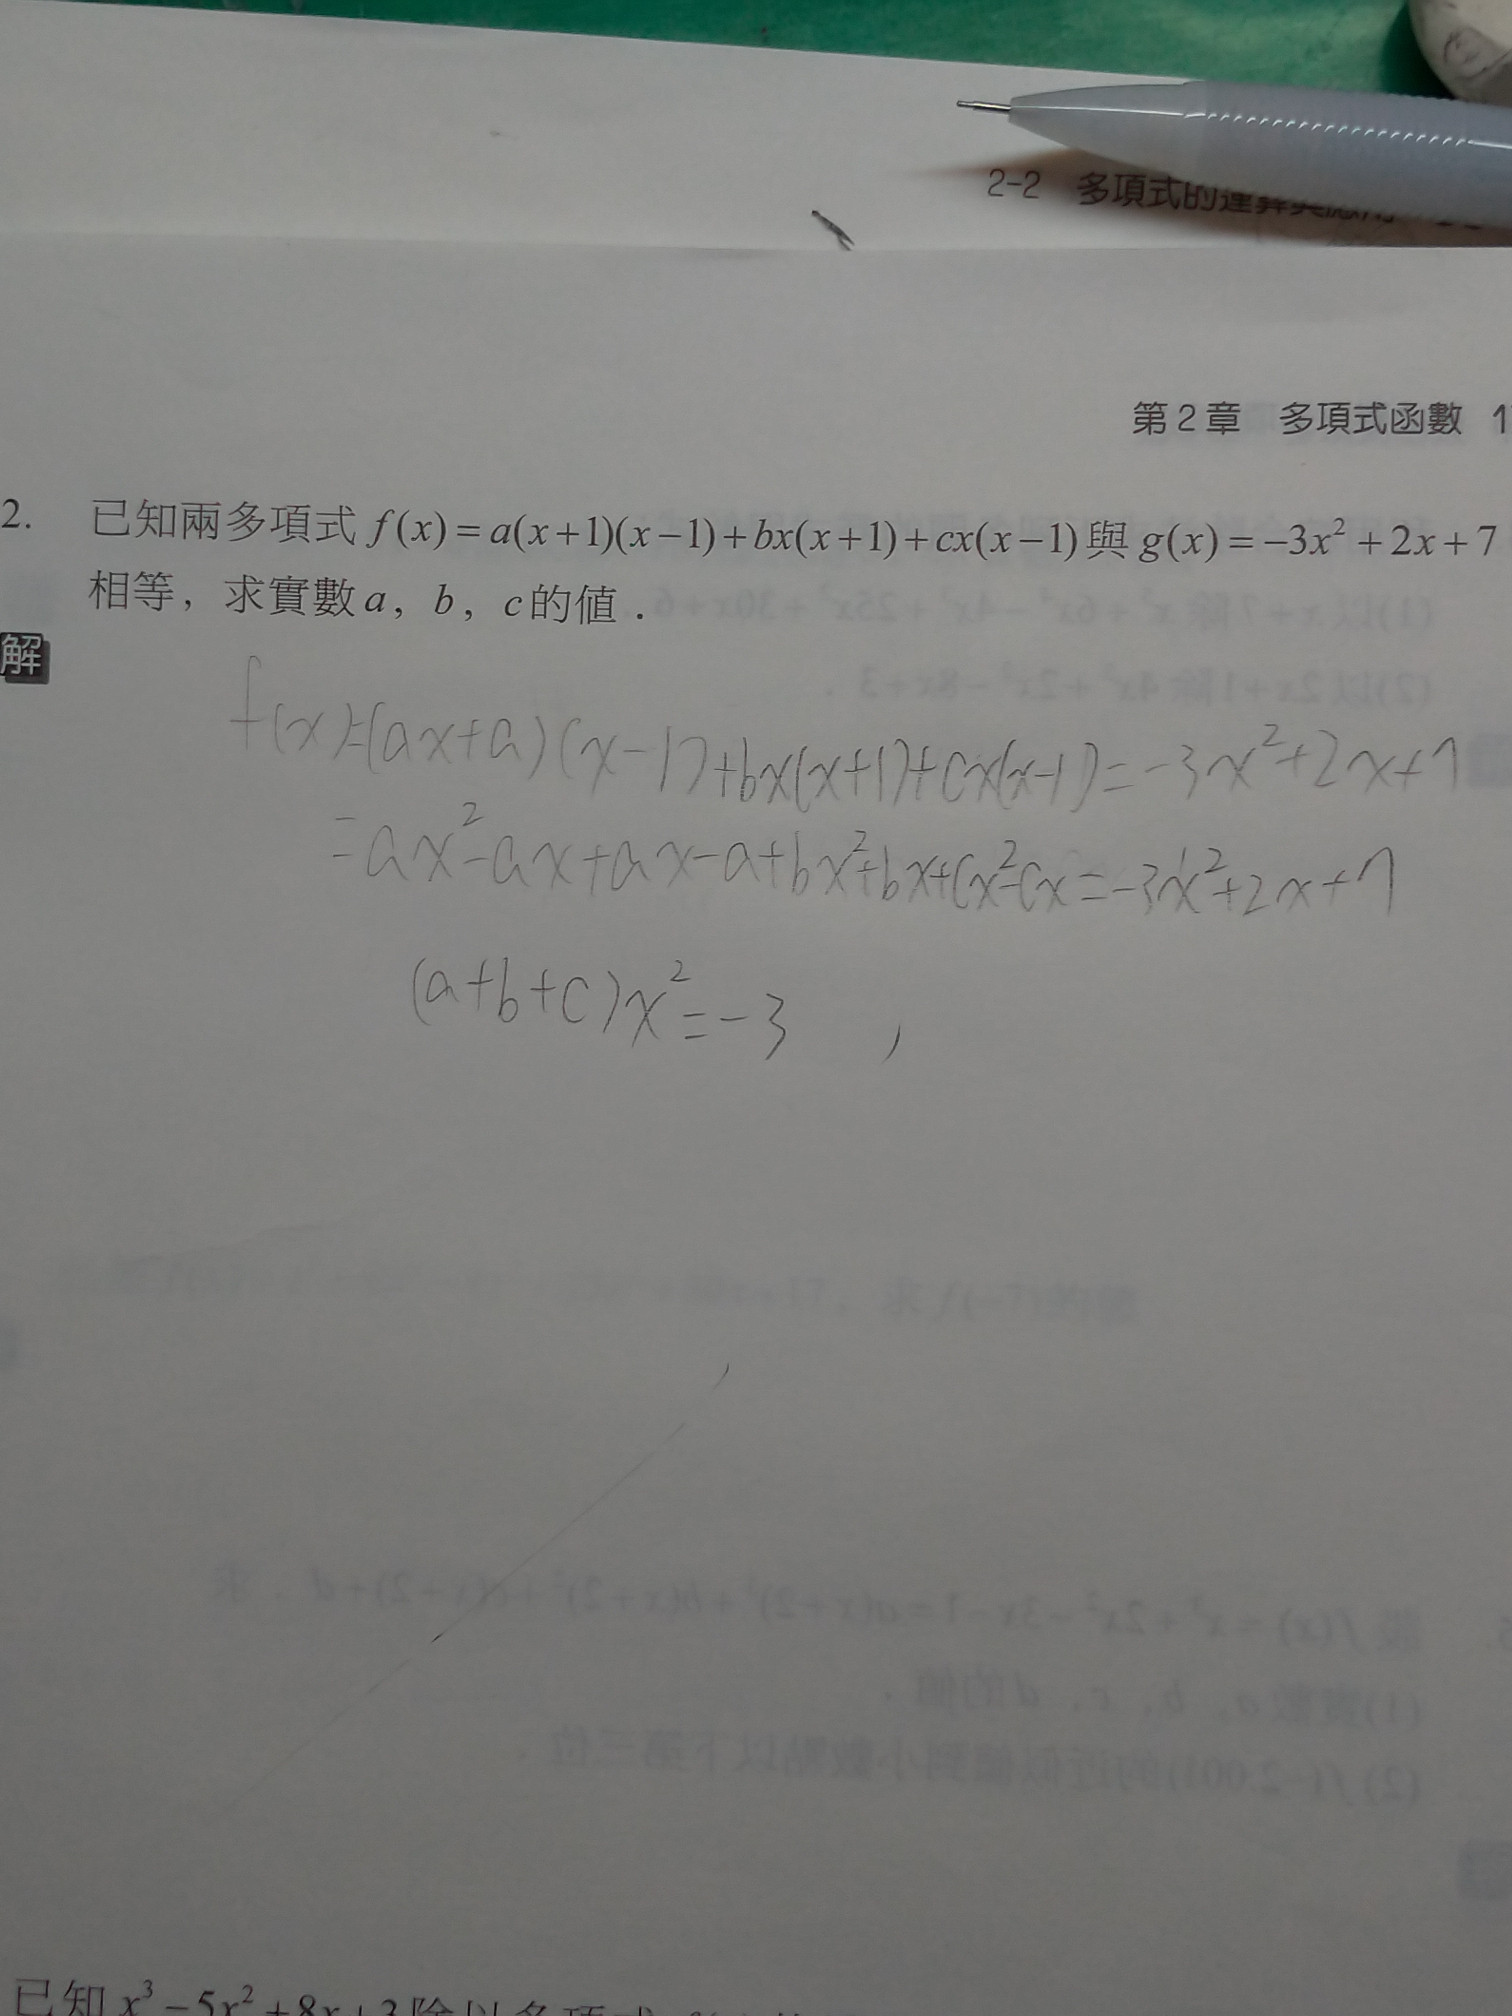 2-2 多項式的運算與應用
第2章 多項式函數 1
2. 已知兩多項式 f(x)=a(x+1)(x−1)+bx(x+1)+cx(x−1) 與 g(x)=−3x²+2x+7
相等，求實數 a，b，c 的值．
解
f(x)=(ax+a)(x-1)+bx(x+1)+cx(x-1)=-3x²+2x+7
=ax²-ax+ax-a+bx²+bx+cx²-cx=-3x²+2x+7
(a+b+c)x²=-3 ,
已知 x³−5x²+8x+3 除以多項式